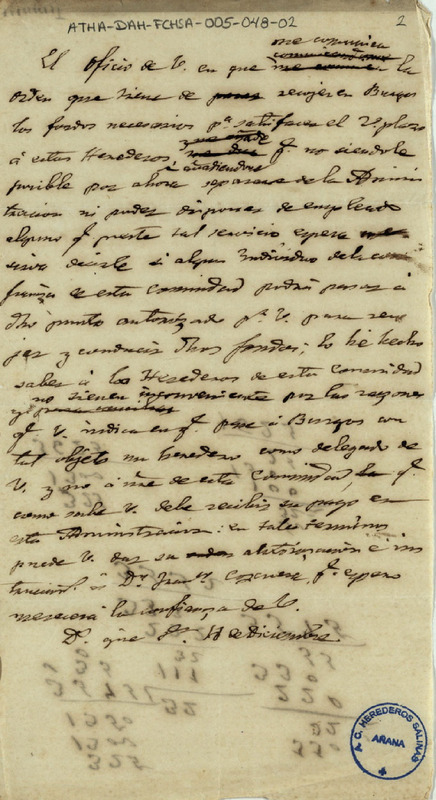 ATHA-DAH-FCHSA-005-048-02
2
me comunica
El Oficio de V. en que la
orden que tiene de recojer en Burgos
los fondos necesarios pa. satisfacer el 2o. plazo
á estos Herederos,
añadiendo q. no siendole
posible por ahora separarse de la Adminis
tracion ni poder disponer de empleado
alguno q. preste tal servicio espera
sirva decirle si algun Individuo de la con
fianza de esta Comunidad podrá pasar á
dho punto autorizado pr. V. para reco
jer y conducir dhos fondos; lo he hecho
saber á los Herederos de esta Comunidad
y no tienen inconveniente por las razones
q. V. indica en q. pase á Burgos con
tal objeto un heredero como delegado de
V. y no á nre. de esta Comunidad q.
como V. debe recibir su pago en
esta Administracion: en tales terminos
puede V. dar su autorizacion é ins
truccions. á Dn. q. espero
merecerá la confianza de V.
D. que Diciembre
A.C. HEREDEROS SALINAS
ARANA